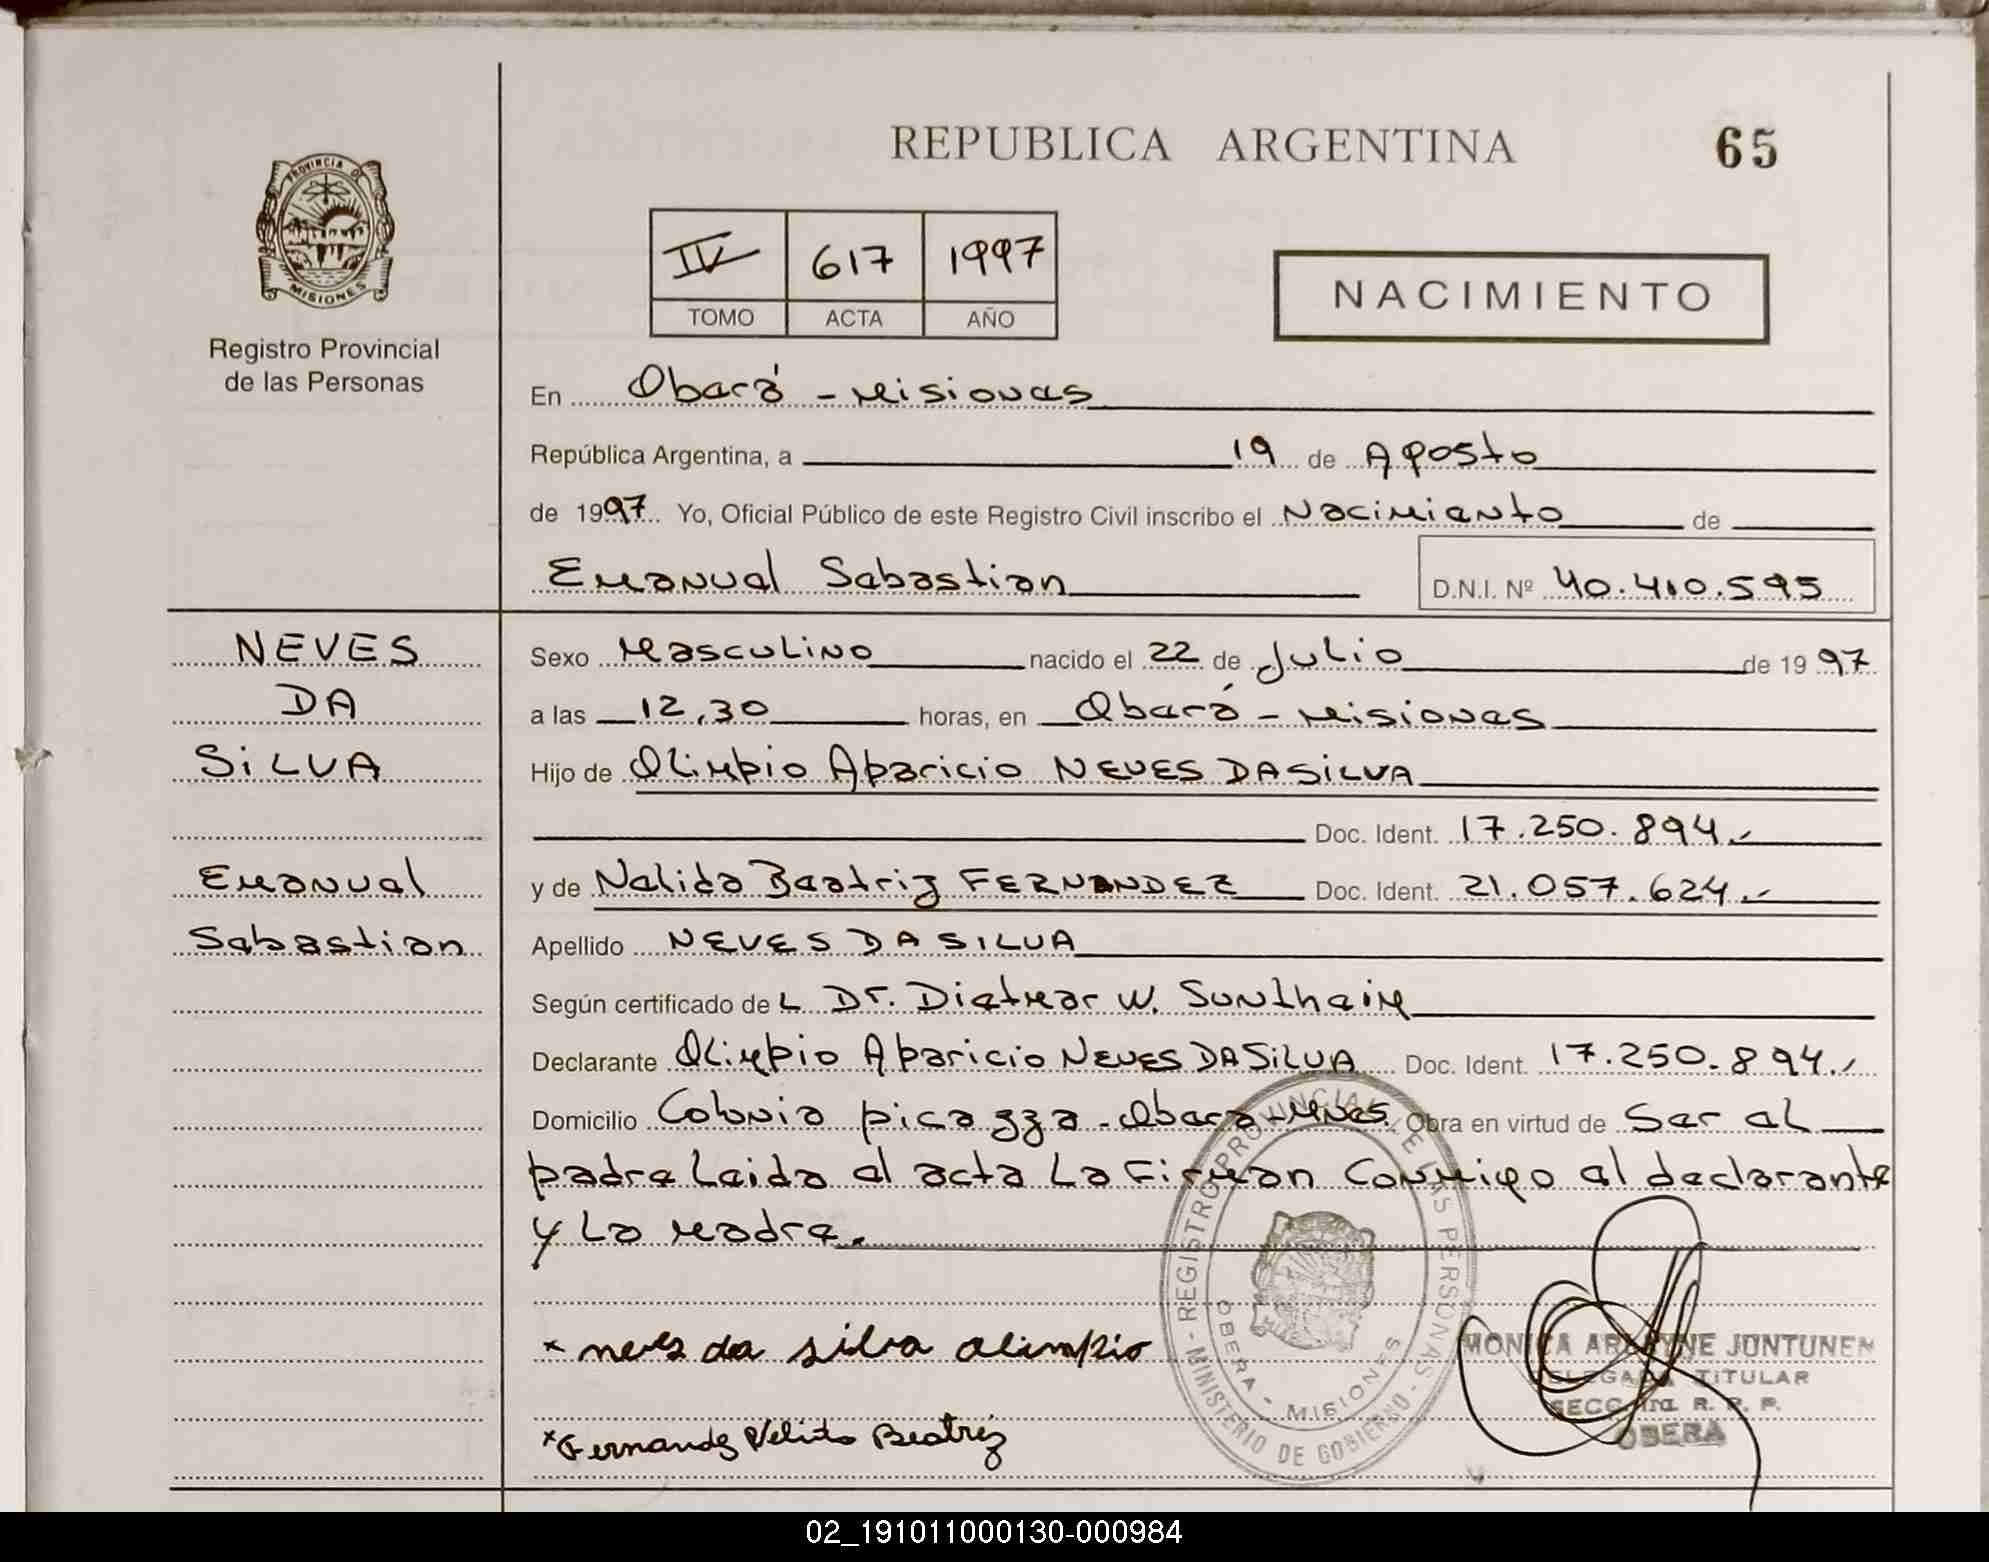 REPUBLICA ARGENTINA
65
PROVINCIA DE
MISIONES
Registro Provincial
de las Personas
IV 617 1997
TOMO ACTA AÑO
NACIMIENTO
En Oberá - Misiones
República Argentina, a 19 de Agosto
de 1997. Yo, Oficial Público de este Registro Civil inscribo el Nacimiento de
Emanuel Sebastian D.N.I. Nº 40.410.595
NEVES
DA
SiLVA
Emanuel
Sebastian
Sexo Masculino nacido el 22 de Julio de 1997
a las 12,30 horas, en Oberá - Misiones
Hijo de Olimpio Aparicio NEVES DA SiLVA
Doc. Ident. 17.250.894.-
y de Nelida Beatriz FERNANDEZ Doc. Ident. 21.057.624.-
Apellido NEVES DA SILVA
Según certificado de L Dr. Dietmar W. Sontheim
Declarante Olimpio Aparicio NEVES DA SiLVA Doc. Ident. 17.250.894.-
Domicilio Colonia picazza - Obera - Mnes. Obra en virtud de Ser el
padre Leida el acta La Firman Conmigo el declarante
y La madre.
x neves da silva olimpio
x Fernandez Nelida Beatriz
REGISTRO PROVINCIAL DE LAS PERSONAS - MINISTERIO DE GOBIERNO -
OBERA - MISIONES
MONICA JUNTUNEN
DELEGADA TITULAR
SECC. 1ra. R. P. P.
OBERA
02_191011000130-000984